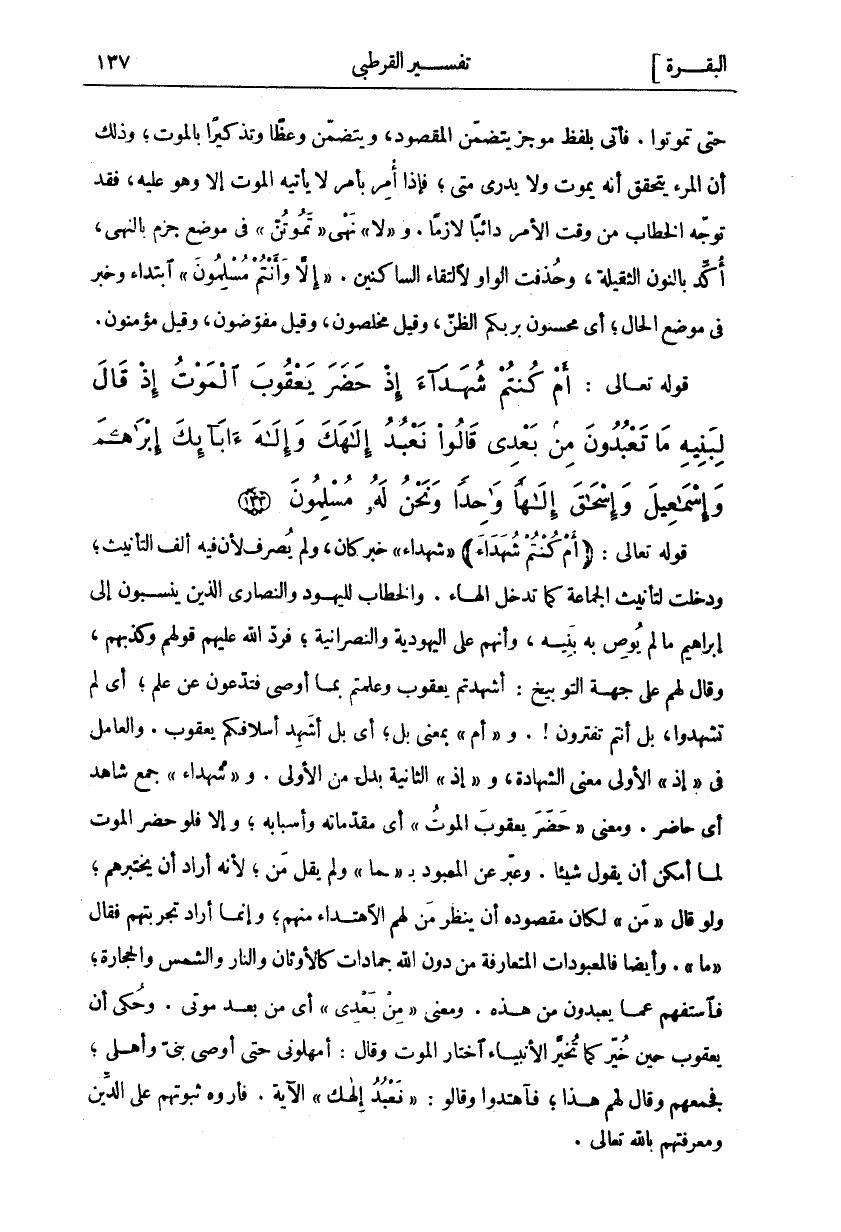 البقـــرة ]
تفســـير القرطبى
١٣٧
حتى تموتوا . فأتى بلفظ موجز يتضمّن المقصود، ويتضمّن وعظًا وتذكيرًا بالموت؛ وذلك
أن المرء يتحقق أنه يموت ولا يدرى متى ؛ فإذا أُمِر بأمر لا يأتيه الموت إلا وهو عليه، فقد
توجّه الخطاب من وقت الأمر دائبًا لازمًا . و «لا» نَهْى « تَمُوتُنّ » فى موضع جزم بالنهى،
أُكِّد بالنون الثقيلة ، وحُذفت الواو لٱلتقاء الساكنين . « إِلَّا وَأَنْتُمْ مُسْلِمُونَ » ٱبتداء وخبر
فى موضع الحال؛ أى محسنون بربكم الظنّ، وقيل مخلصون، وقيل مفوّضون، وقيل مؤمنون.
قوله تعـالى : أَمْ كُنتُمْ شُهَدَآءَ إِذْ حَضَرَ يَعْقُوبَ ٱلْمَوْتُ إِذْ قَالَ
لِبَنِيهِ مَا تَعْبُدُونَ مِنۢ بَعْدِى قَالُوا۟ نَعْبُدُ إِلَٰهَكَ وَإِلَٰهَ ءَابَآئِكَ إِبْرَٰهِـۧمَ
وَإِسْمَٰعِيلَ وَإِسْحَٰقَ إِلَٰهًا وَٰحِدًا وَنَحْنُ لَهُۥ مُسْلِمُونَ ﴿١٣٣﴾
قوله تعالى : ﴿ أَمْ كُنْتُمْ شُهَدَاءَ ﴾ «شهداء» خبر كان، ولم يُصرف لأن فيه ألف التأنيث؛
ودخلت لتأنيث الجماعة كما تدخل الهـاء . والخطاب لليهود والنصارى الذين ينسـبون إلى
إبراهيم ما لم يُوصِ به بَنِيـه ، وأنهم على اليهودية والنصرانية ؛ فردّ الله عليهم قولهم وكذبهم ،
وقال لهم على جهـة التوبيخ : أشهدتم يعقوب وعلمتم بمـا أوصى فتدّعون عن علم ؛ أى لم
تشهدوا، بل أنتم تفترون ! . و « أم » بمعنى بل؛ أى بل أشَهِد أسلافكم يعقوب . والعامل
فى « إذ » الأولى معنى الشهادة، و « إذ » الثانية بدل من الأولى . و « شُهداء » جمع شاهد
أى حاضر . ومعنى « حَضَرَ يعقوبَ الموتُ » أى مقدّماته وأسبابه ؛ وإلا فلو حضر الموت
لمـا أمكن أن يقول شيئا . وعبّر عن المعبود بـ « ـما » ولم يقل مَن ؛ لأنه أراد أن يختبرهم ؛
ولو قال « مَن » لكان مقصوده أن ينظر مَن لهم الٱهتـداء منهم؛ وإنمـا أراد تجربتهم فقال
«ما» . وأيضا فالمعبودات المتعارفة من دون الله جمادات كالأوثان والنار والشمس والحجارة؛
فٱستفهم عمـا يعبدون من هـذه . ومعنى « مِنْ بَعْدِى » أى من بعـد موتى . وحُكى أن
يعقوب حين خُيّر كما تُخيَّر الأنبيـاء ٱختار الموت وقال : أمهلونى حتى أوصى بنىّ وأهـلى ؛
فجمعهم وقال لهم هـذا ؛ فٱهتدوا وقالو : « نَعْبُدُ إِلٰهك » الآية . فأروه ثبوتهم على الدِّين
ومعرفتهم بالله تعالى .